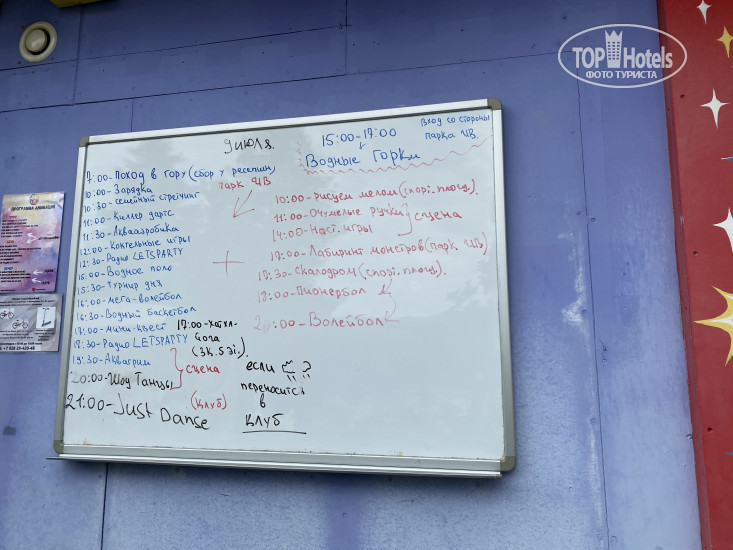 TOP Hotels
ФОТО ТУРИСТА
9 июля.
15:00-17:00
Водные Горки
Вход со стороны
парка ЦВ.
7:00-Поход в гору (сбор у ресепшн)
10:00-Зарядка
10:30-семейный стретчинг
11:00-Киллер дартс
11:30-Аквааэробика
12:00-Коктельные игры
12:30-Радио LETSPARTY
15:00-Водное поло
15:30-Турнир дня
16:00-мега-волейбол
16:30-Водный баскетбол
17:00-мини-квест
17:00-Хатха-
Йога
(3к. 5 эт.)
18:30-Радио LETSPARTY
19:30-Аквагрим
20:00-Шоу Танцы
сцена
21:00-Just Danse
(клуб)
парк ЦВ
+
10:00-рисуем мелом (спорт. площ.)
11:00-Очумелые ручки
14:00-Наст. игры
сцена
17:00-Лабиринт монстров (парк ЦВ)
17:30-Скалодром (спорт. площ.)
18:00-Пионербол
20:00-Волейбол
если ?
переносится
в
клуб
ПРОГРАММА АНИМАЦИИ